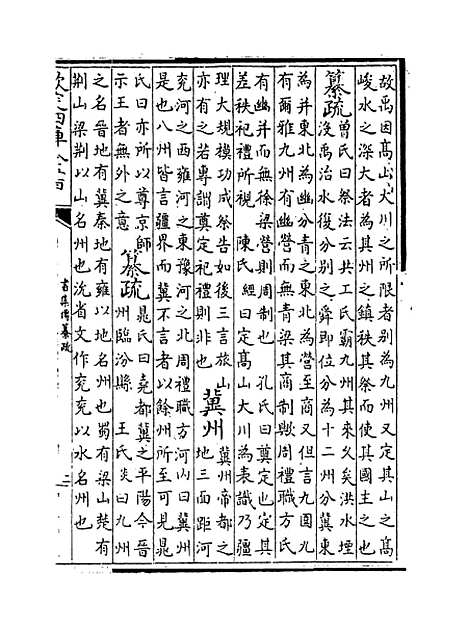 故禹因高山大川之所限者别為九州又定其山之高
峻水之深大者為其州之鎮秩其祭而使其國主之也
纂疏曽氏曰祭法云共工氏霸九州其來久矣洪水堙
没禹治水後分别之舜即位分為十二州分冀東
為并東北為幽分青之東北為營至商又但言九圍九
有爾雅九州有幽營而無青梁其商制歟周禮職方氏
有幽并而無徐梁營則周制也 孔氏曰奠定也定其
差秩祀禮所視 陳氏經曰定高山大川為表識乃疆
理大規模功成祭告如後三言旅山
亦有之若專謂奠定祀禮則非也
冀州
冀州帝都之
地三面距河
兖河之西雍河之東豫河之北周禮職方河内曰冀州
是也八州皆言疆界而冀不言者以餘州所至可見晁
氏曰亦所以尊京師
示王者無外之意
纂疏
晁氏曰堯都冀之平陽今晋
州臨汾縣 王氏炎曰九州
之名晉地有冀秦地有雍以地名州也蜀有梁山楚有
荆山梁荆以山名州也沇省文作兖兖以水名州也
欽定四庫全書
書集傳纂疏
二